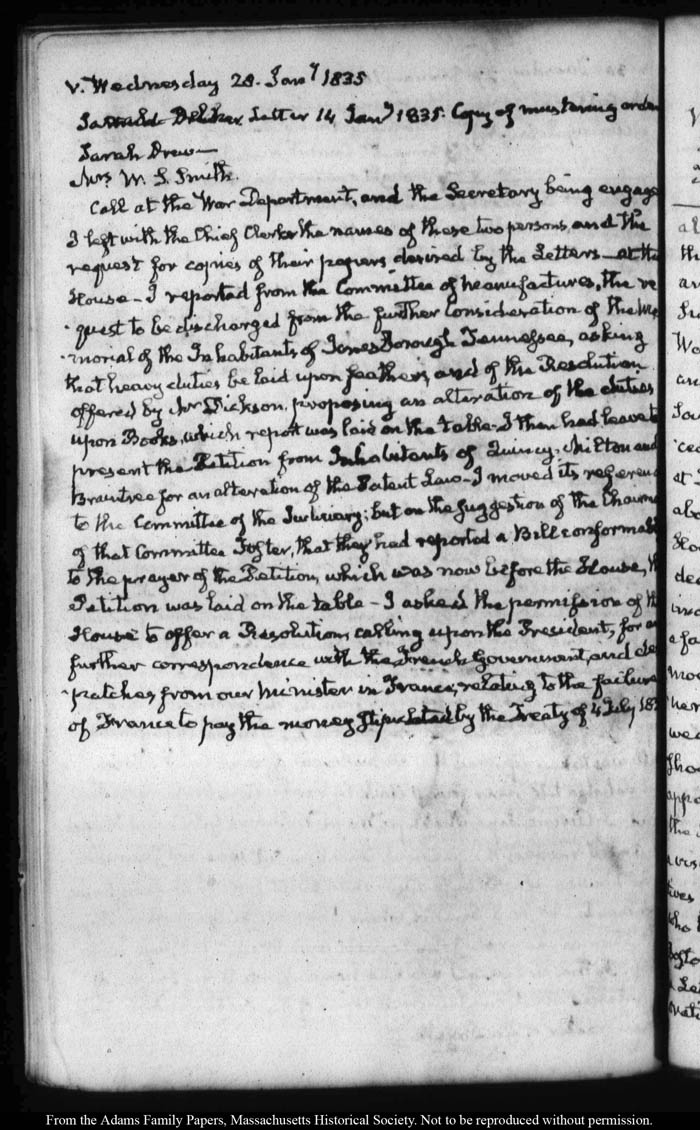 V. Wednesday 28. Jany 1835
Letter 14 Jany 1835. Copy of mustering order
Sarah Drew
Mrs W. S. Smith.
Call at the War Department, and the Secretary being engage
I left with the Chief Clerk the names of these two persons, and the
request for copies of their papers desired by the Letters — at the
House — I reported from the Committee of Manufactures, the re
quest to be discharged from the further consideration of the Me
morial of the Inhabitants of Jonesborough Tennessee, asking
that heavy duties be laid upon feathers, and of the Resolution
offered by Mr Dickson, proposing an alteration of the duties
upon Books, which report was laid on the table — I then had leave to
present the Petition from Inhabitants of Quincy, Milton and
Braintree for an alteration of the Patent Laws — I moved its referenc
to the Committee of the Judiciary; but on the suggestion of the Chairm
of that Committee Foster, that they had reported a Bill conformabl
to the prayer of the Petition, which was now before the House, th
Petition was laid on the table — I asked the permission of th
House to offer a Resolution, calling upon the President, for an
further correspondence with the French Government, and des
patches from our Minister in France, relating to the failure
of France to pay the money stipulated by the Treaty of 4 July 183
From the Adams Family Papers, Massachusetts Historical Society. Not to be reproduced without permission.